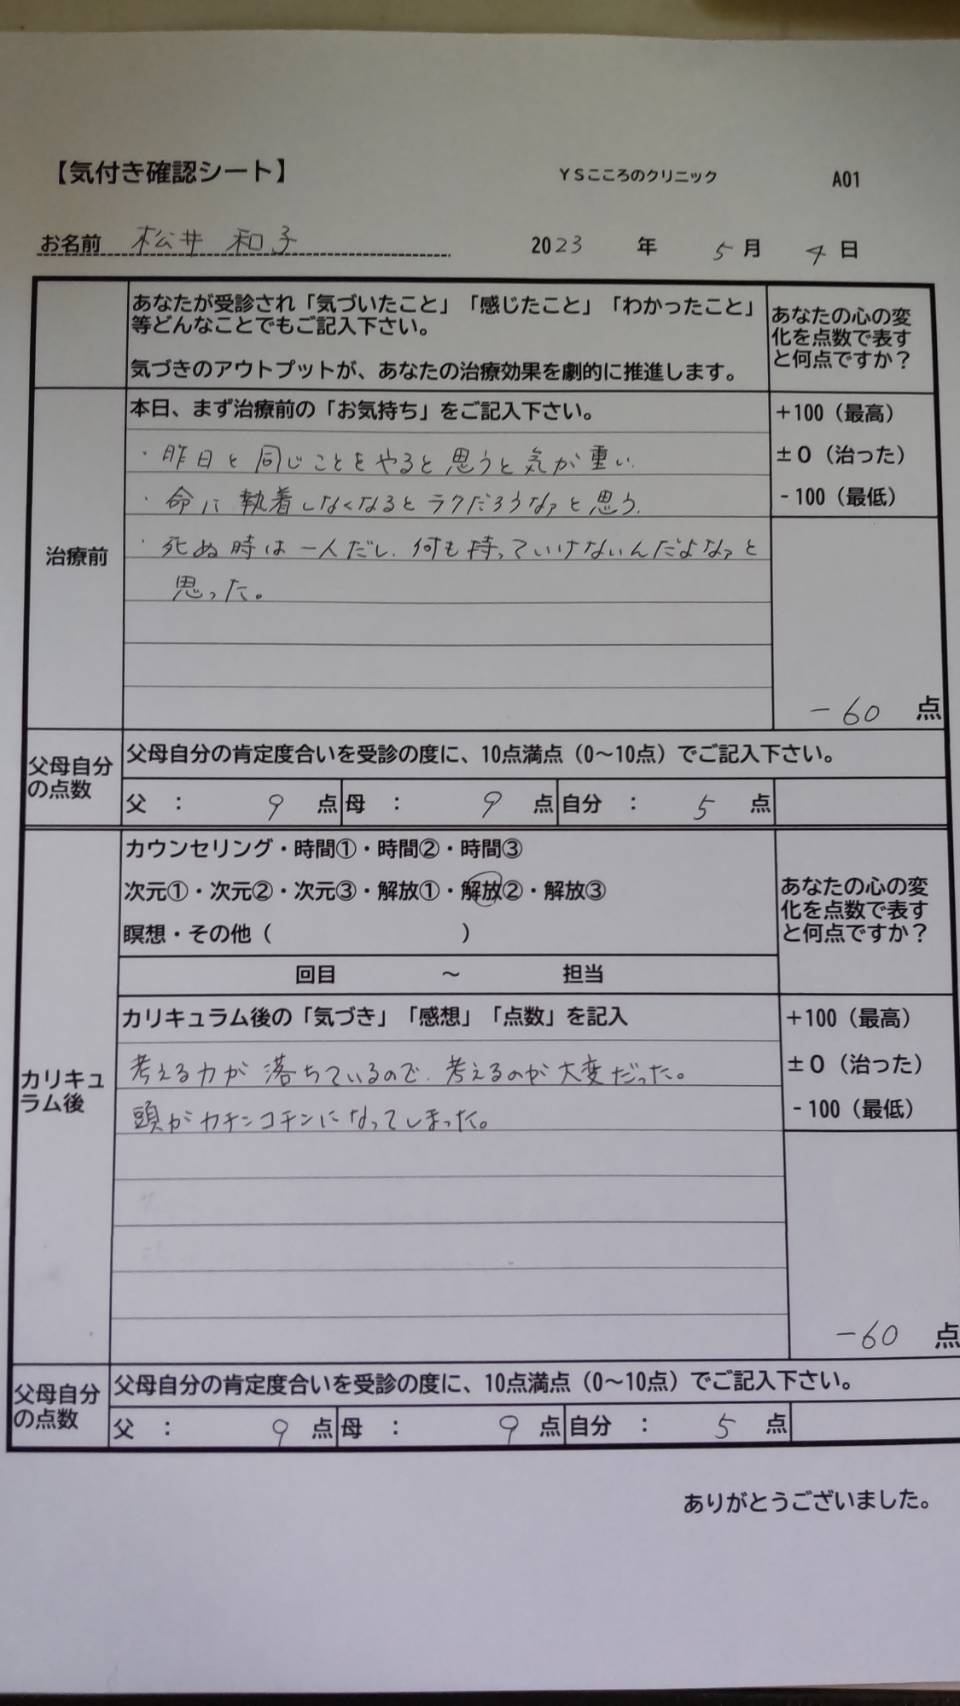 【気付き確認シート】 YSこころのクリニック A01
お名前 松井 和子 2023 年 5 月 4 日
あなたが受診され「気づいたこと」「感じたこと」「わかったこと」
等どんなことでもご記入下さい。
気づきのアウトプットが、あなたの治療効果を劇的に推進します。
あなたの心の変
化を点数で表す
と何点ですか？
治療前
本日、まず治療前の「お気持ち」をご記入下さい。
・昨日と同じことをやると思うと気が重い.
・命に執着しなくなるとラクだろうなァと思う.
・死ぬ時は一人だし、何も持っていけないんだよなァと
思った。
+100（最高）
±0（治った）
-100（最低）
-60 点
父母自分
の点数
父母自分の肯定度合いを受診の度に、10点満点（0～10点）でご記入下さい。
父 ： 9 点 母 ： 9 点 自分 ： 5 点
カリキュ
ラム後
カウンセリング・時間①・時間②・時間③
次元①・次元②・次元③・解放①・解放②・解放③
瞑想・その他（ ）
回目 ～ 担当
あなたの心の変
化を点数で表す
と何点ですか？
カリキュラム後の「気づき」「感想」「点数」を記入
考える力が落ちているので、考えるのが大変だった。
頭がカチンコチンになってしまった。
+100（最高）
±0（治った）
-100（最低）
-60 点
父母自分
の点数
父母自分の肯定度合いを受診の度に、10点満点（0～10点）でご記入下さい。
父 ： 9 点 母 ： 9 点 自分 ： 5 点
ありがとうございました。